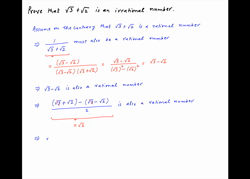 Prove that √3 + √2 is an irrational number.
Assume on the contrary that √3 + √2 is a rational number
⇒ 1/(√3 + √2) must also be a rational number
= (√3 − √2)/((√3 − √2)(√3 + √2)) = (√3 − √2)/((√3)² − (√2)²) = √3 − √2
⇒ √3 − √2 is also a rational number
⇒ ((√3 + √2) − (√3 − √2))/2 is also a rational number
= √2
⇒